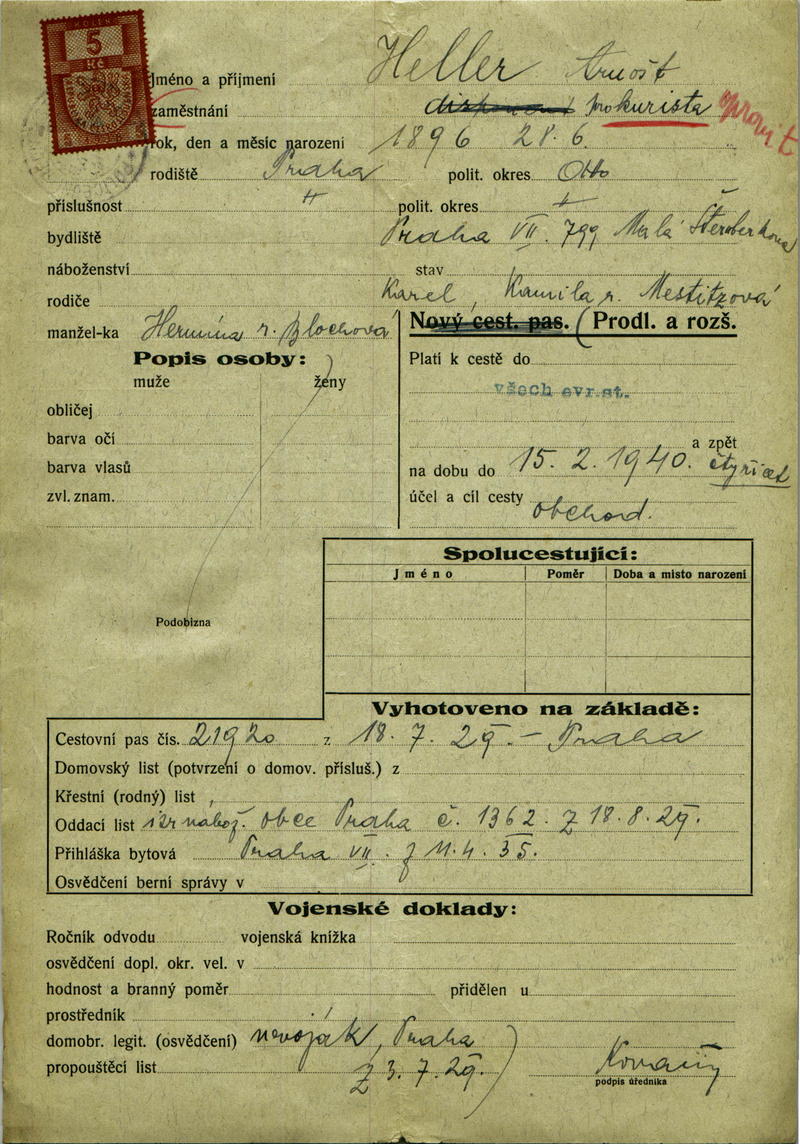 KOLEK
5
Kč
Jméno a příjmení Heller Arnošt
zaměstnání prokurista
rok, den a měsíc narození 1896 28. 6.
rodiště Praha polit. okres Otto
příslušnost " polit. okres
bydliště Praha VII. 799 Malá Šternberkova
náboženství stav
rodiče Karel, Kamila r. Mestitzová
manžel-ka Hermína r. Blochová
Nový cest. pas. (Prodl. a rozš.
Popis osoby:
muže ženy
obličej
barva očí
barva vlasů
zvl. znam.
Platí k cestě do
všech evr. st.
a zpět
na dobu do 15. 2. 1940. čtyřicet
účel a cíl cesty obchod.
Podobizna
Spolucestující:
Jméno Poměr Doba a místo narození
Vyhotoveno na základě:
Cestovní pas čís. 21920 z 18. 7. 29. - Praha
Domovský list (potvrzení o domov. přísluš.) z
Křestní (rodný) list
Oddací list izr nábož. obce Praha č. 1362 z 18. 8. 29.
Přihláška bytová Praha VII. z 11. 4. 35.
Osvědčení berní správy v
Vojenské doklady:
Ročník odvodu vojenská knížka
osvědčení dopl. okr. vel. v
hodnost a branný poměr přidělen u
prostředník
domobr. legit. (osvědčení) nevoják, Praha
propouštěcí list z 3. 7. 29.)
podpis úředníka